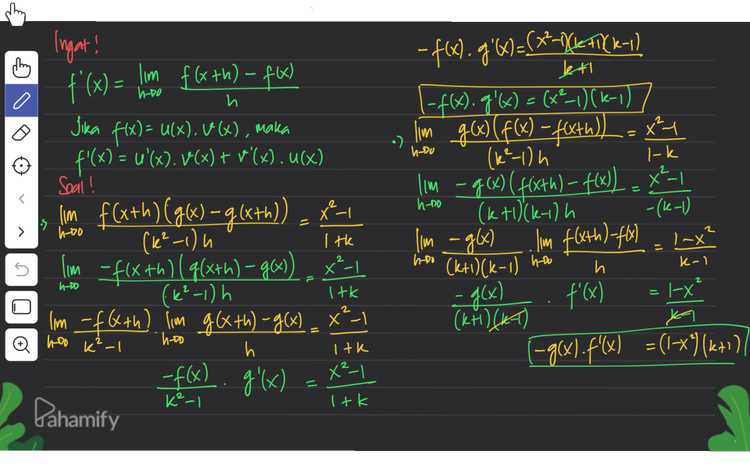 Ingat!
f'(x) = lim h→0 f(x+h) – f(x) / h
Jika f(x) = u(x). v(x), maka
f'(x) = u'(x). v(x) + v'(x). u(x)
Soal!
lim h→0 f(x+h)(g(x) – g(x+h)) / (k²–1)h = x²–1 / 1+k
lim h→0 –f(x+h)(g(x+h) – g(x)) / (k²–1)h = x²–1 / 1+k
lim h→0 –f(x+h) / k²–1 . lim h→0 g(x+h) – g(x) / h = x²–1 / 1+k
–f(x) / k²–1 . g'(x) = x²–1 / 1+k
–f(x). g'(x) = (x²–1)(k+1)(k–1) / k+1
–f(x). g'(x) = (x²–1)(k–1)
lim h→0 g(x)(f(x) – f(x+h)) / (k²–1)h = x²–1 / 1–k
lim h→0 –g(x)(f(x+h) – f(x)) / (k+1)(k–1)h = x²–1 / –(k–1)
lim h→0 –g(x) / (k+1)(k–1) . lim h→0 f(x+h) – f(x) / h = 1–x² / k–1
–g(x) / (k+1)(k–1) . f'(x) = 1–x² / k–1
–g(x). f'(x) = (1–x²)(k+1)
Pahamify